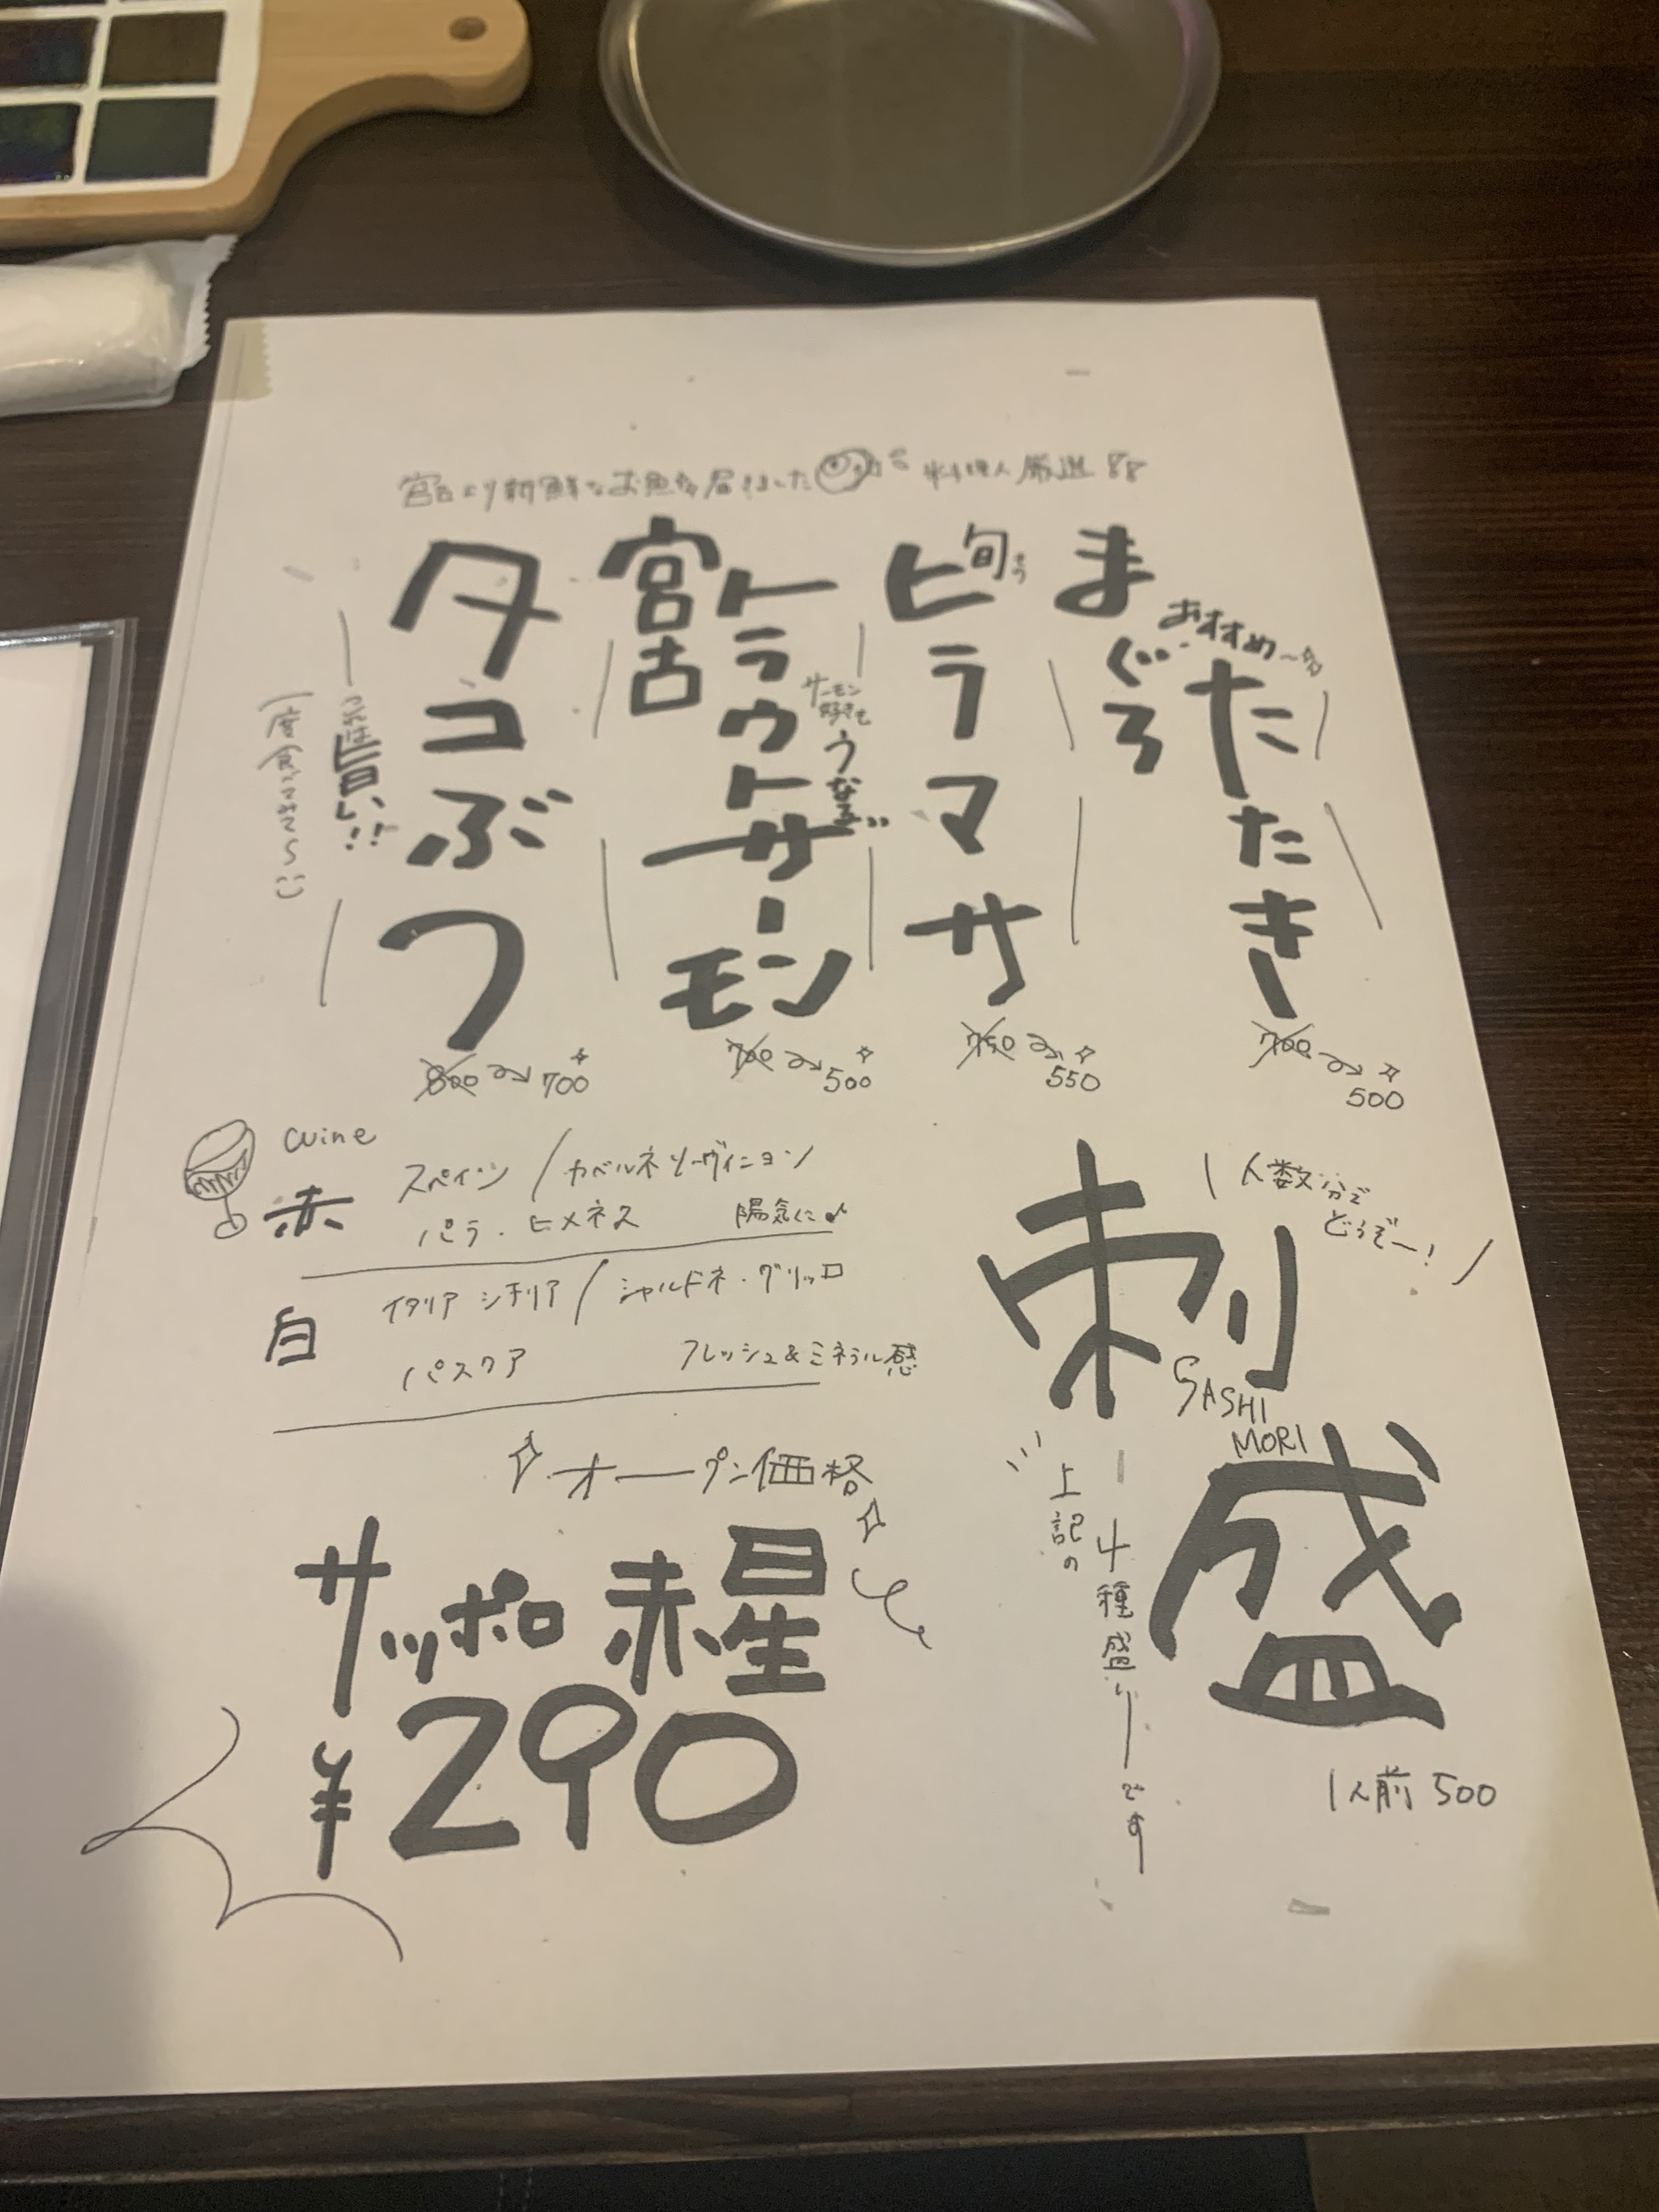 宮古より新鮮なお魚が届きました 料理人厳選
まぐろ
たたき
おすすめ〜
700 → 500
ヒラマサ
旬
750 → 550
宮古
トラウトサーモン
サーモン
好きも
うなる
700 → 500
タコぶつ
これは旨い!!
一度食べてみて〜
800 → 700
wine
赤 スペイン / カベルネソーヴィニヨン
パラ・ヒメネス 陽気に♪
白 イタリア シチリア / シャルドネ・グリッロ
パスクア フレッシュ&ミネラル感
オープン価格
サッポロ 赤星
¥290
人数分で
どうぞー!
刺盛
SASHI
MORI
上記の
4種盛りです
1人前 500